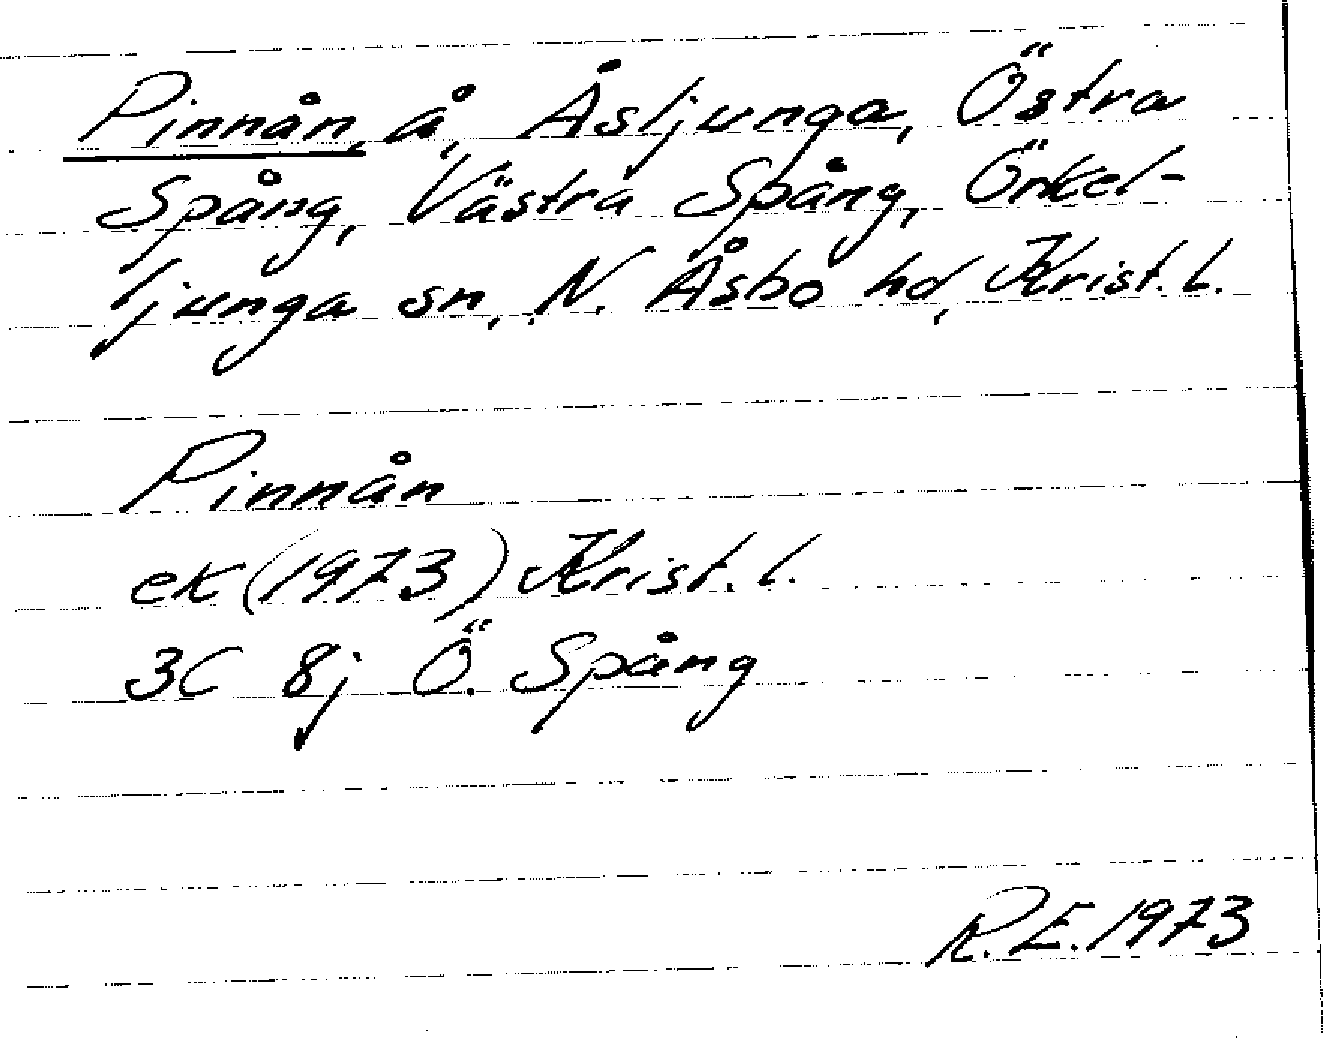 Pinnån, å, Åsljunga, Östra
Spång, Västra Spång, Örkel-
ljunga sn, N. Åsbo hd, Krist. l.
Pinnån
ek (1973) Krist. l.
3C 8j Ö. Spång
R.E. 1973